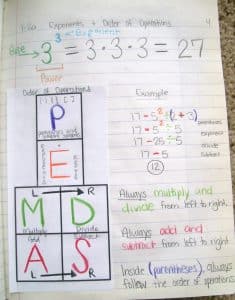 Exponents + Order of Operations
4
Base
3³ = 3·3·3 = 27
Exponent
Power
Order of Operations
P
E
L → R
M D
Multiply Divide
A S
Add Subtract
L → R
Example
17 - 5² ÷ (2 + 3) parentheses
17 - 5² ÷ 5 exponent
17 - 25 ÷ 5 divide
17 - 5 subtract
12
Always multiply and
divide from left to right.
Always add and
subtract from left to right.
Inside (parentheses), always
follow the order of operations